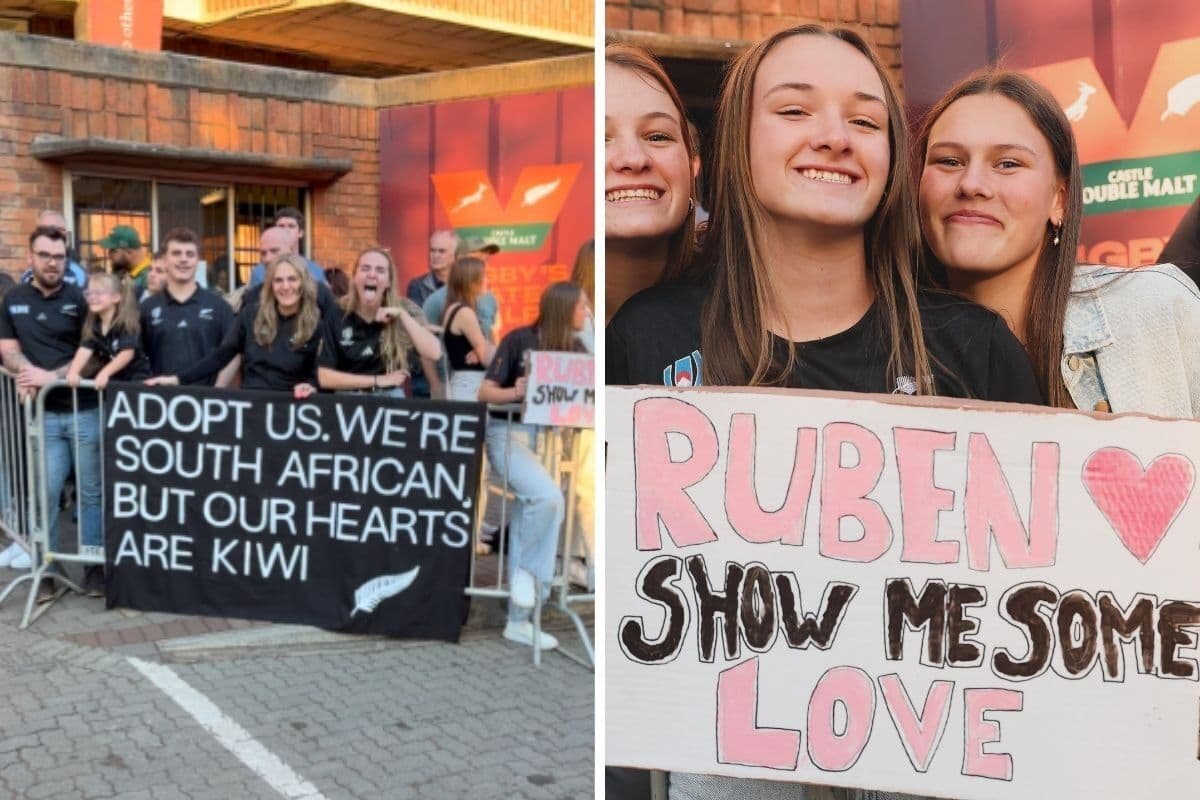 ADOPT US. WE'RE
SOUTH AFRICAN,
BUT OUR HEARTS
ARE KIWI
RUBEN
SHOW ME SOME
LOVE
CASTLE
DOUBLE MALT